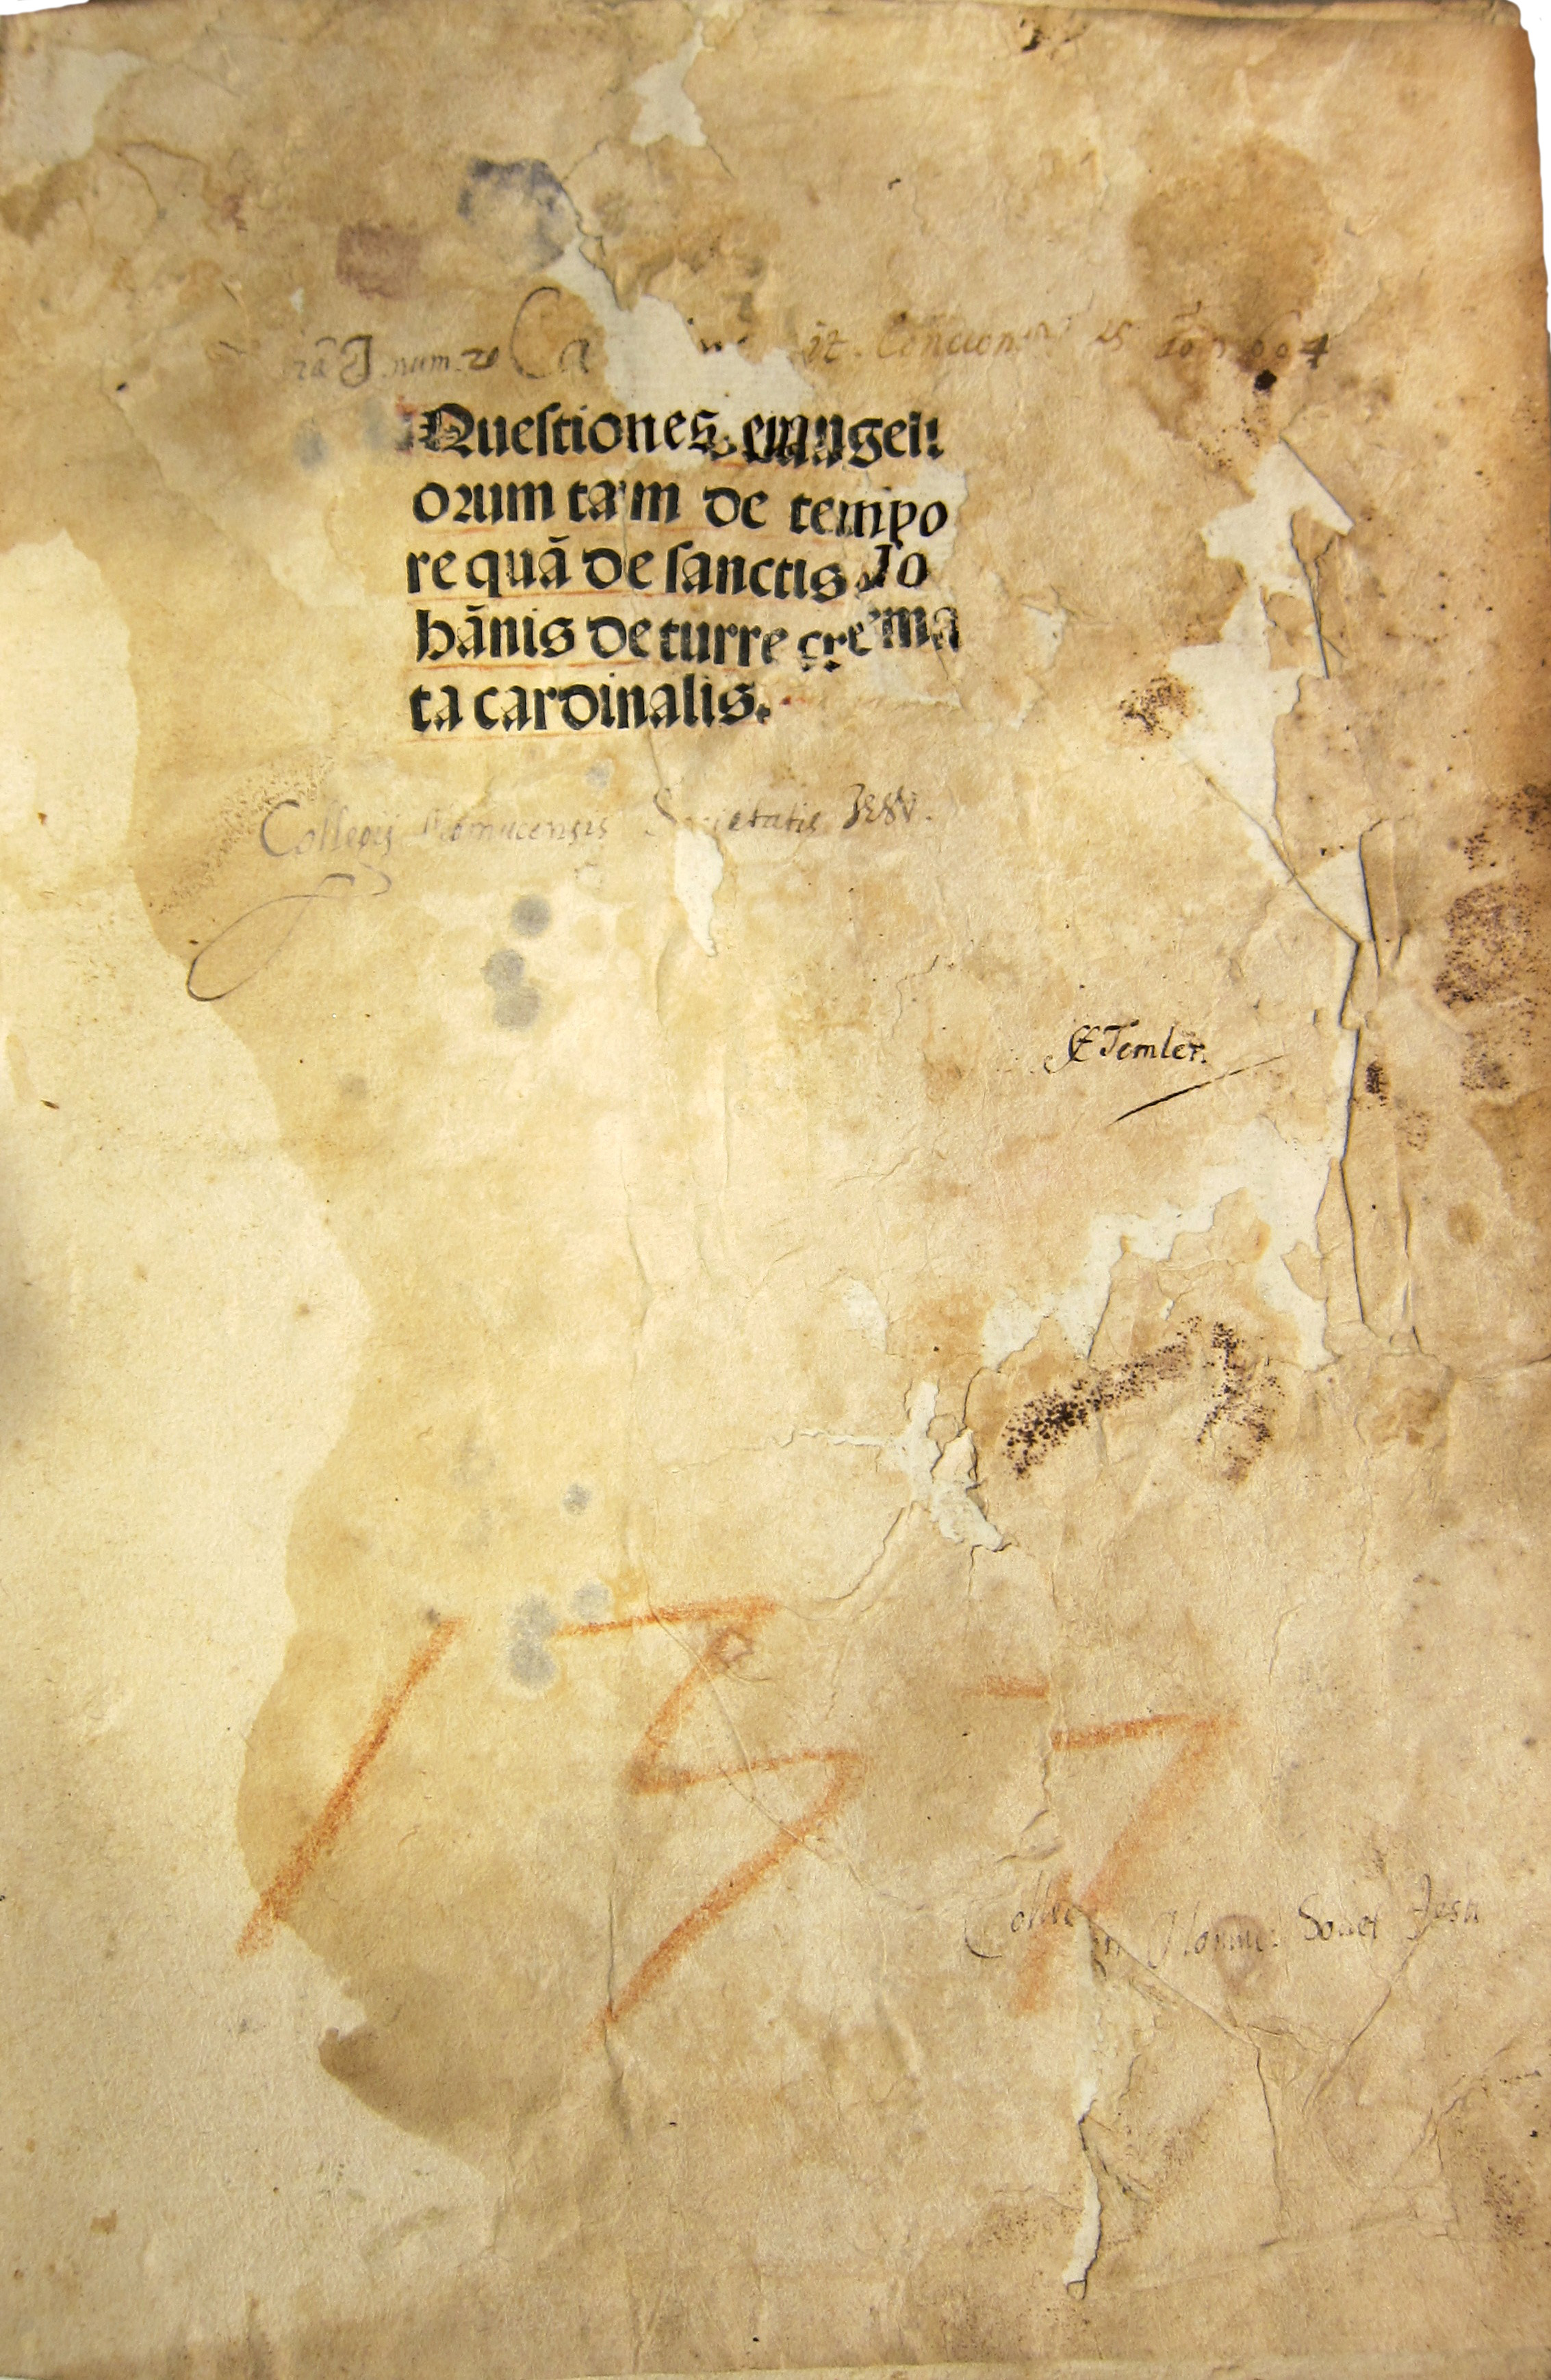 J num. 20 Ca it. Concion 1604
Questiones euangeli
orum tam de tempo
re quã de sanctis Jo
hãnis de turre crema
ta cardinalis.
Collegij Olomucensis Societatis JESV.
Temler.
157
Colle Olomuc: Societ Jesu